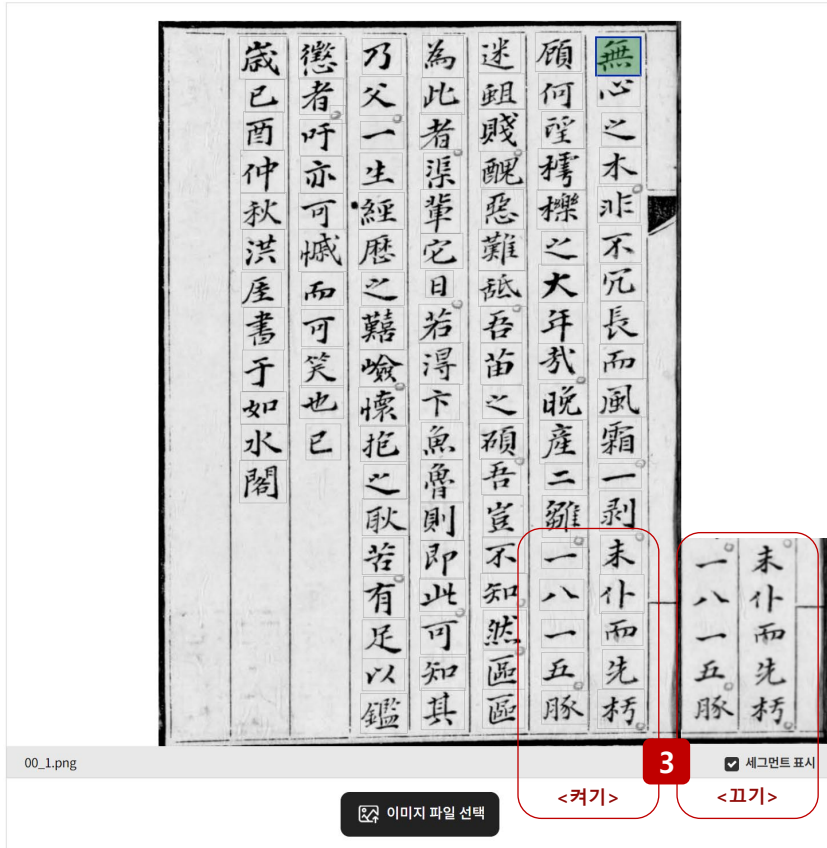 無心之木非不冗長而風霜一剥未仆而先朽
顧何望樗櫟之大年哉晩產二雛一八一五豚
迷蛆賤醜惡難舐吾苗之碩吾豈不知然區區
為此者渠輩它日若淂卞魚魯則即此可知其
乃父一生經歷之囏嶮懷抱之耿苦有足以鑑
懲者吁亦可慽而可笑也已
歲己酉仲秋洪厓書于如水閣
未仆而先朽
一八一五豚
00_1.png
3
세그먼트 표시
<켜기>
<끄기>
이미지 파일 선택